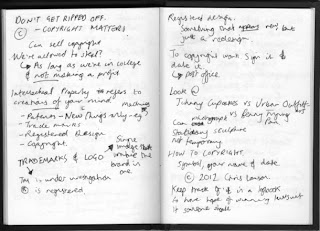 DON'T GET RIPPED OFF.
© - COPYRIGHT MATTERS
Can sell copyrights
We're allowed to steal?
↳ As long as we're in college
& not making a profit
Intellectual Property → refers to
creations of your mind
- Patents - New things only - eg machines
- Trade marks
- Registered Design
- Copyright.
TRADEMARKS & LOGO
Simple
image that
symbolise the
brand in
one
TM is under investigation
® is registered.
Registered design.
Something that appears new but
just a redesign.
To copyright work sign it &
date it.
↳ Post office.
Look @
Johnny Cupcakes vs Urban Outfitters
vs Penny
Can
Stationary sculpture
not temporary
HOW TO COPYRIGHT.
Symbol, your name & date
© 2012 Chris
Keep track of it in a logbook
to have hope of winning lawsuit
if someone stole